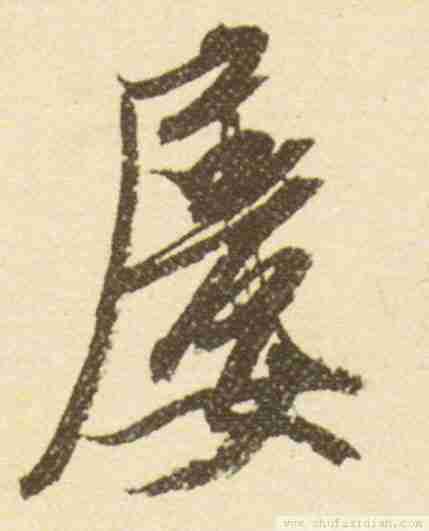 屡
www.shufazidian.com